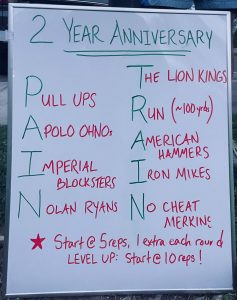 2 YEAR ANNIVERSARY
THE LION KINGS
PULL UPS
RUN (~100 yrds)
APOLO OHNOs
AMERICAN
HAMMERS
IMPERIAL
BLOCKSTERS
IRON MIKES
NOLAN RYANS
NO CHEAT
MERKINS
★ Start @ 5 reps, 1 extra each round
LEVEL UP: Start @ 10 reps!